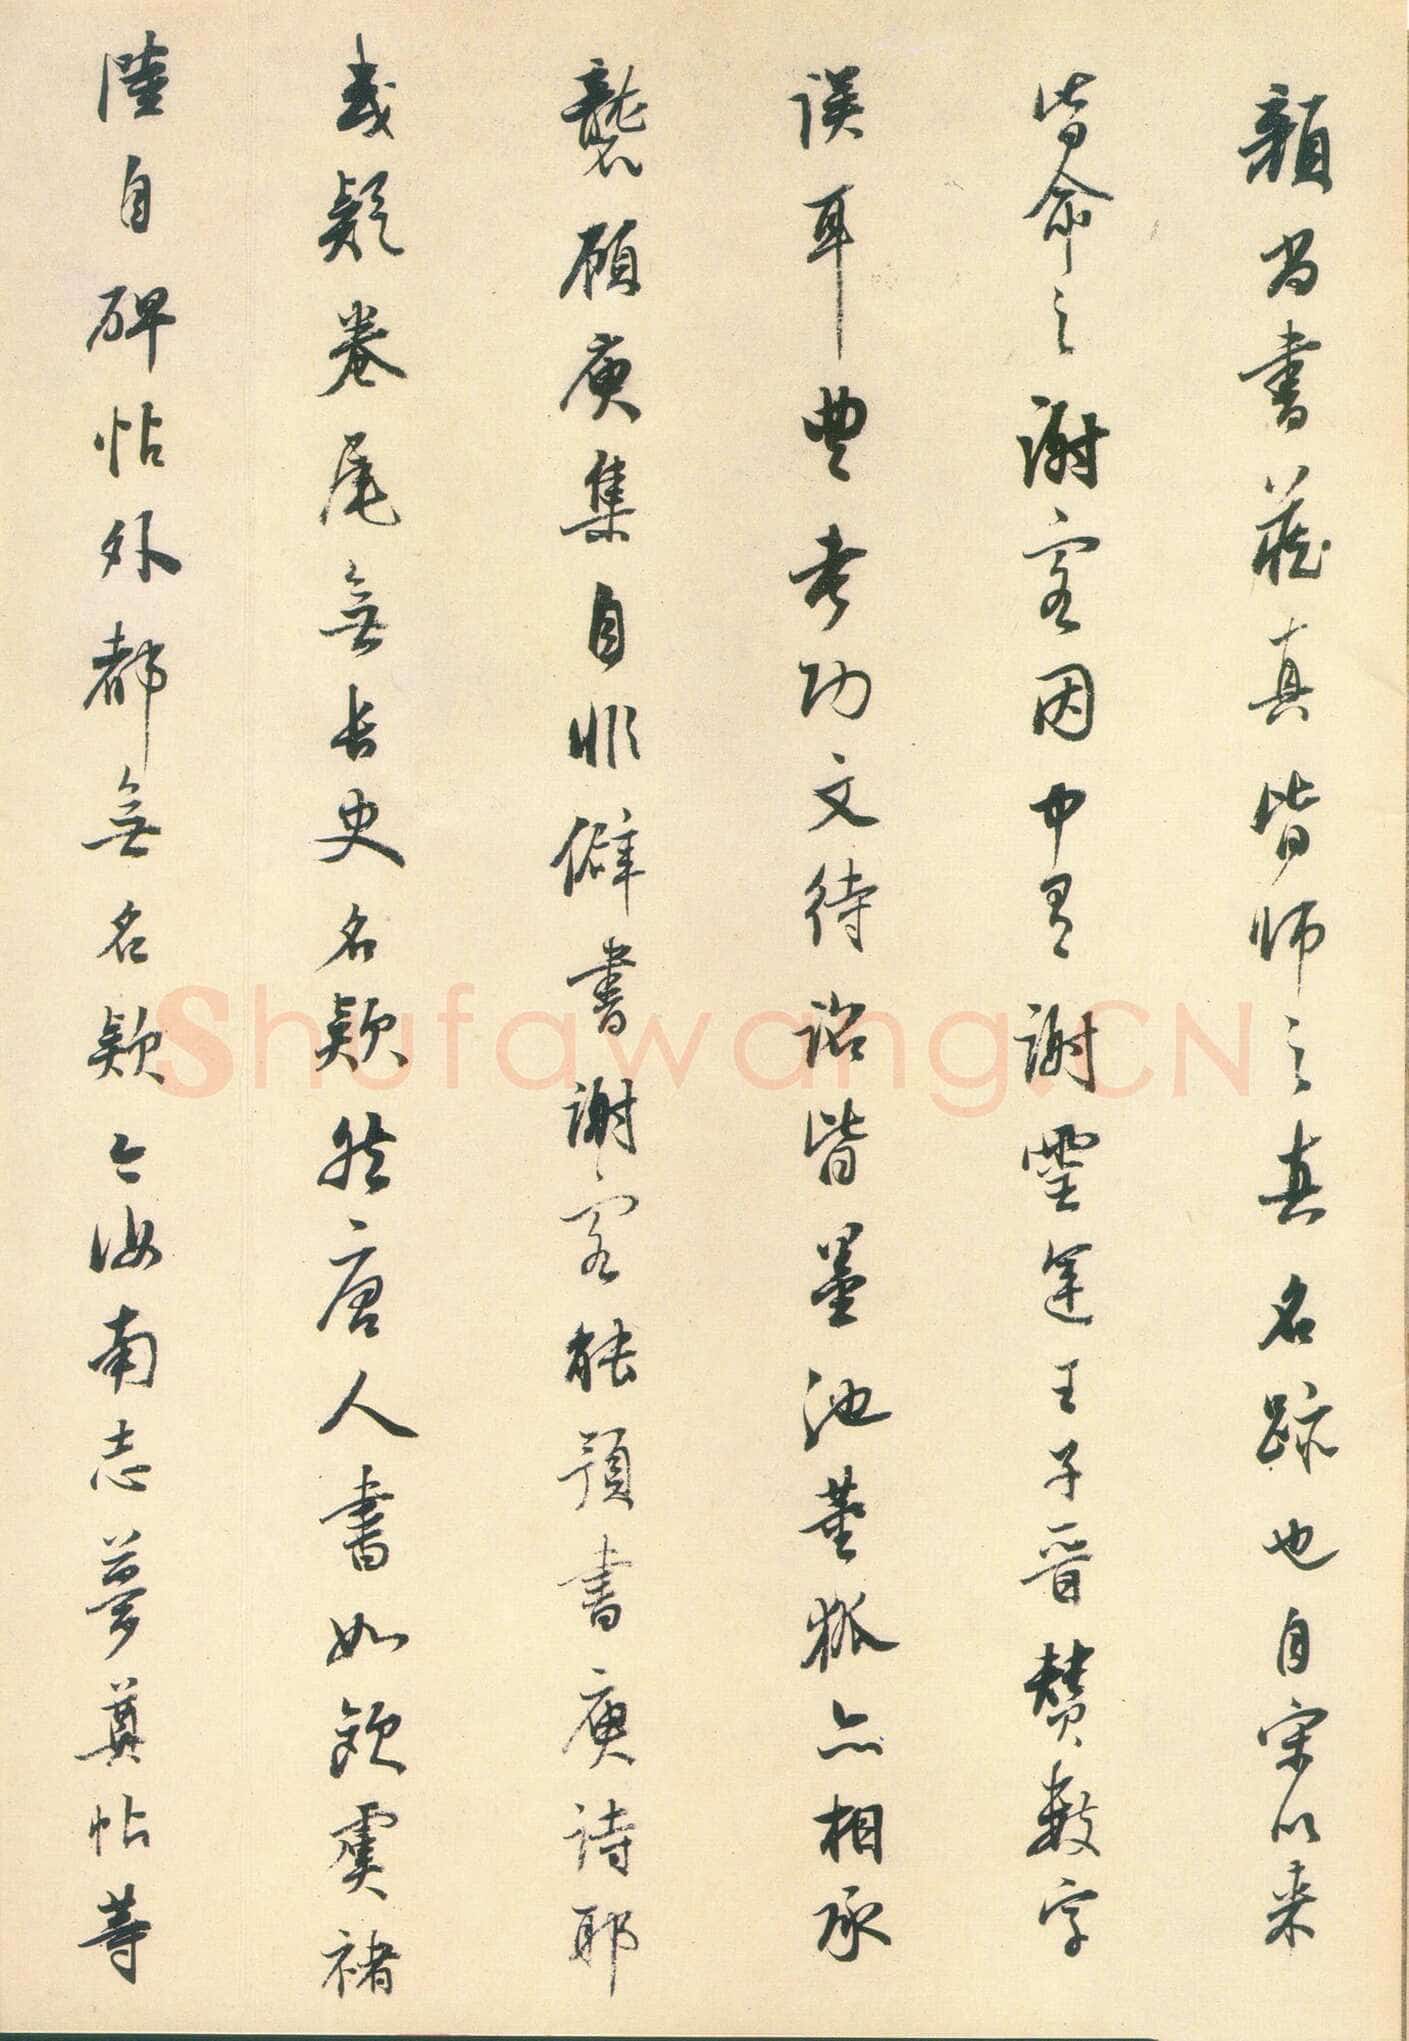 顏尚書藏真皆師之真名跡也自宋以來
皆命之謝客因中有謝靈運王子晉贊數字
誤耳豐考功文待詔皆墨池董狐亦相承
襲顧庾集自非僻書謝客能預書庾詩耶
或疑卷尾無長史名款然唐人書如歐虞褚
陸自碑帖外都無名款今汝南志夢奠帖等
Shufawang.CN